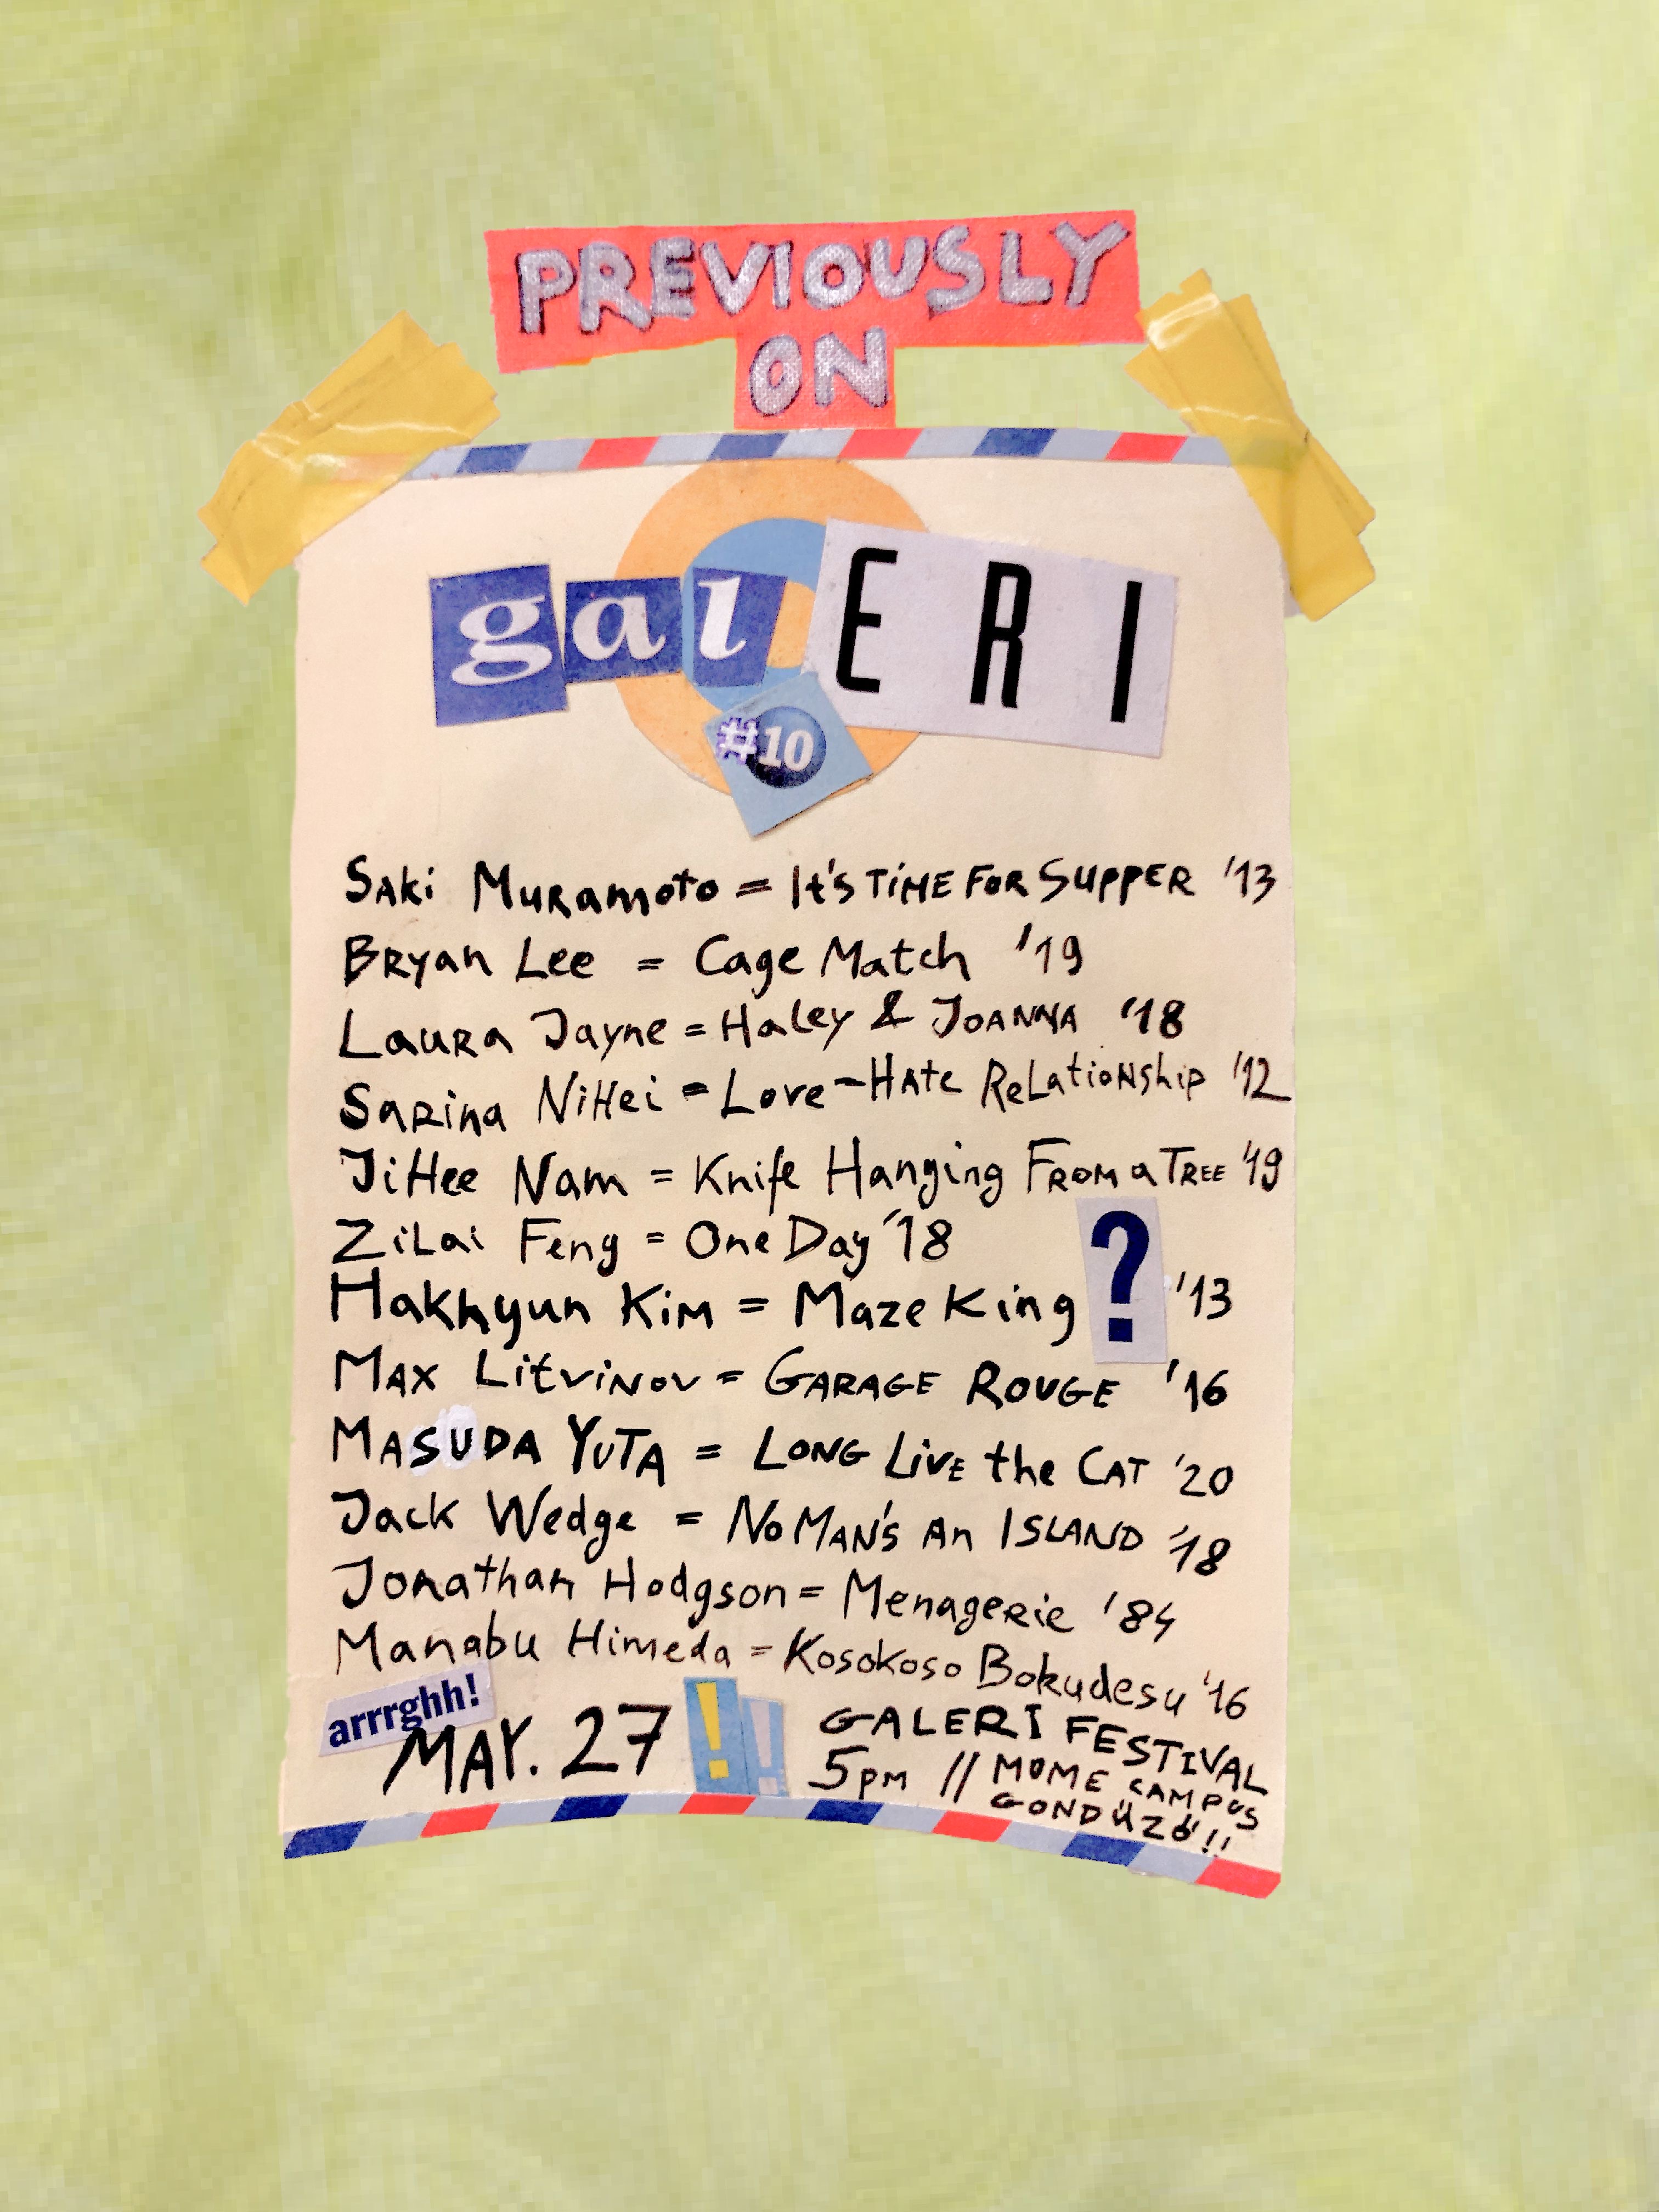 PREVIOUSLY
ON
galERI
#10
Saki Muramoto = It's TiME FOR SUPPER '13
Bryan Lee = Cage Match '19
Laura Jayne = Haley & JOANNA '18
Sarina NiHei = Love-HAte ReLatioNship '12
JiHee Nam = Knife Hanging FROM a TREE '19
ZiLai Feng = One Day '18
Hakhyun Kim = Maze King ? '13
MAX LitviNov = GARAGE ROUGE '16
MASUDA YUTA = LONG LivE the CAT '20
Jack Wedge = No MAN'S An ISLAND '18
Jonathan Hodgson = Menagerie '84
Manabu Himeda = Kosokoso Bokudesu '16
arrrghh!
MAY. 27 !! GALERI FESTIVAL
5PM // MOME CAMPUS
GONDŰZŐ!!